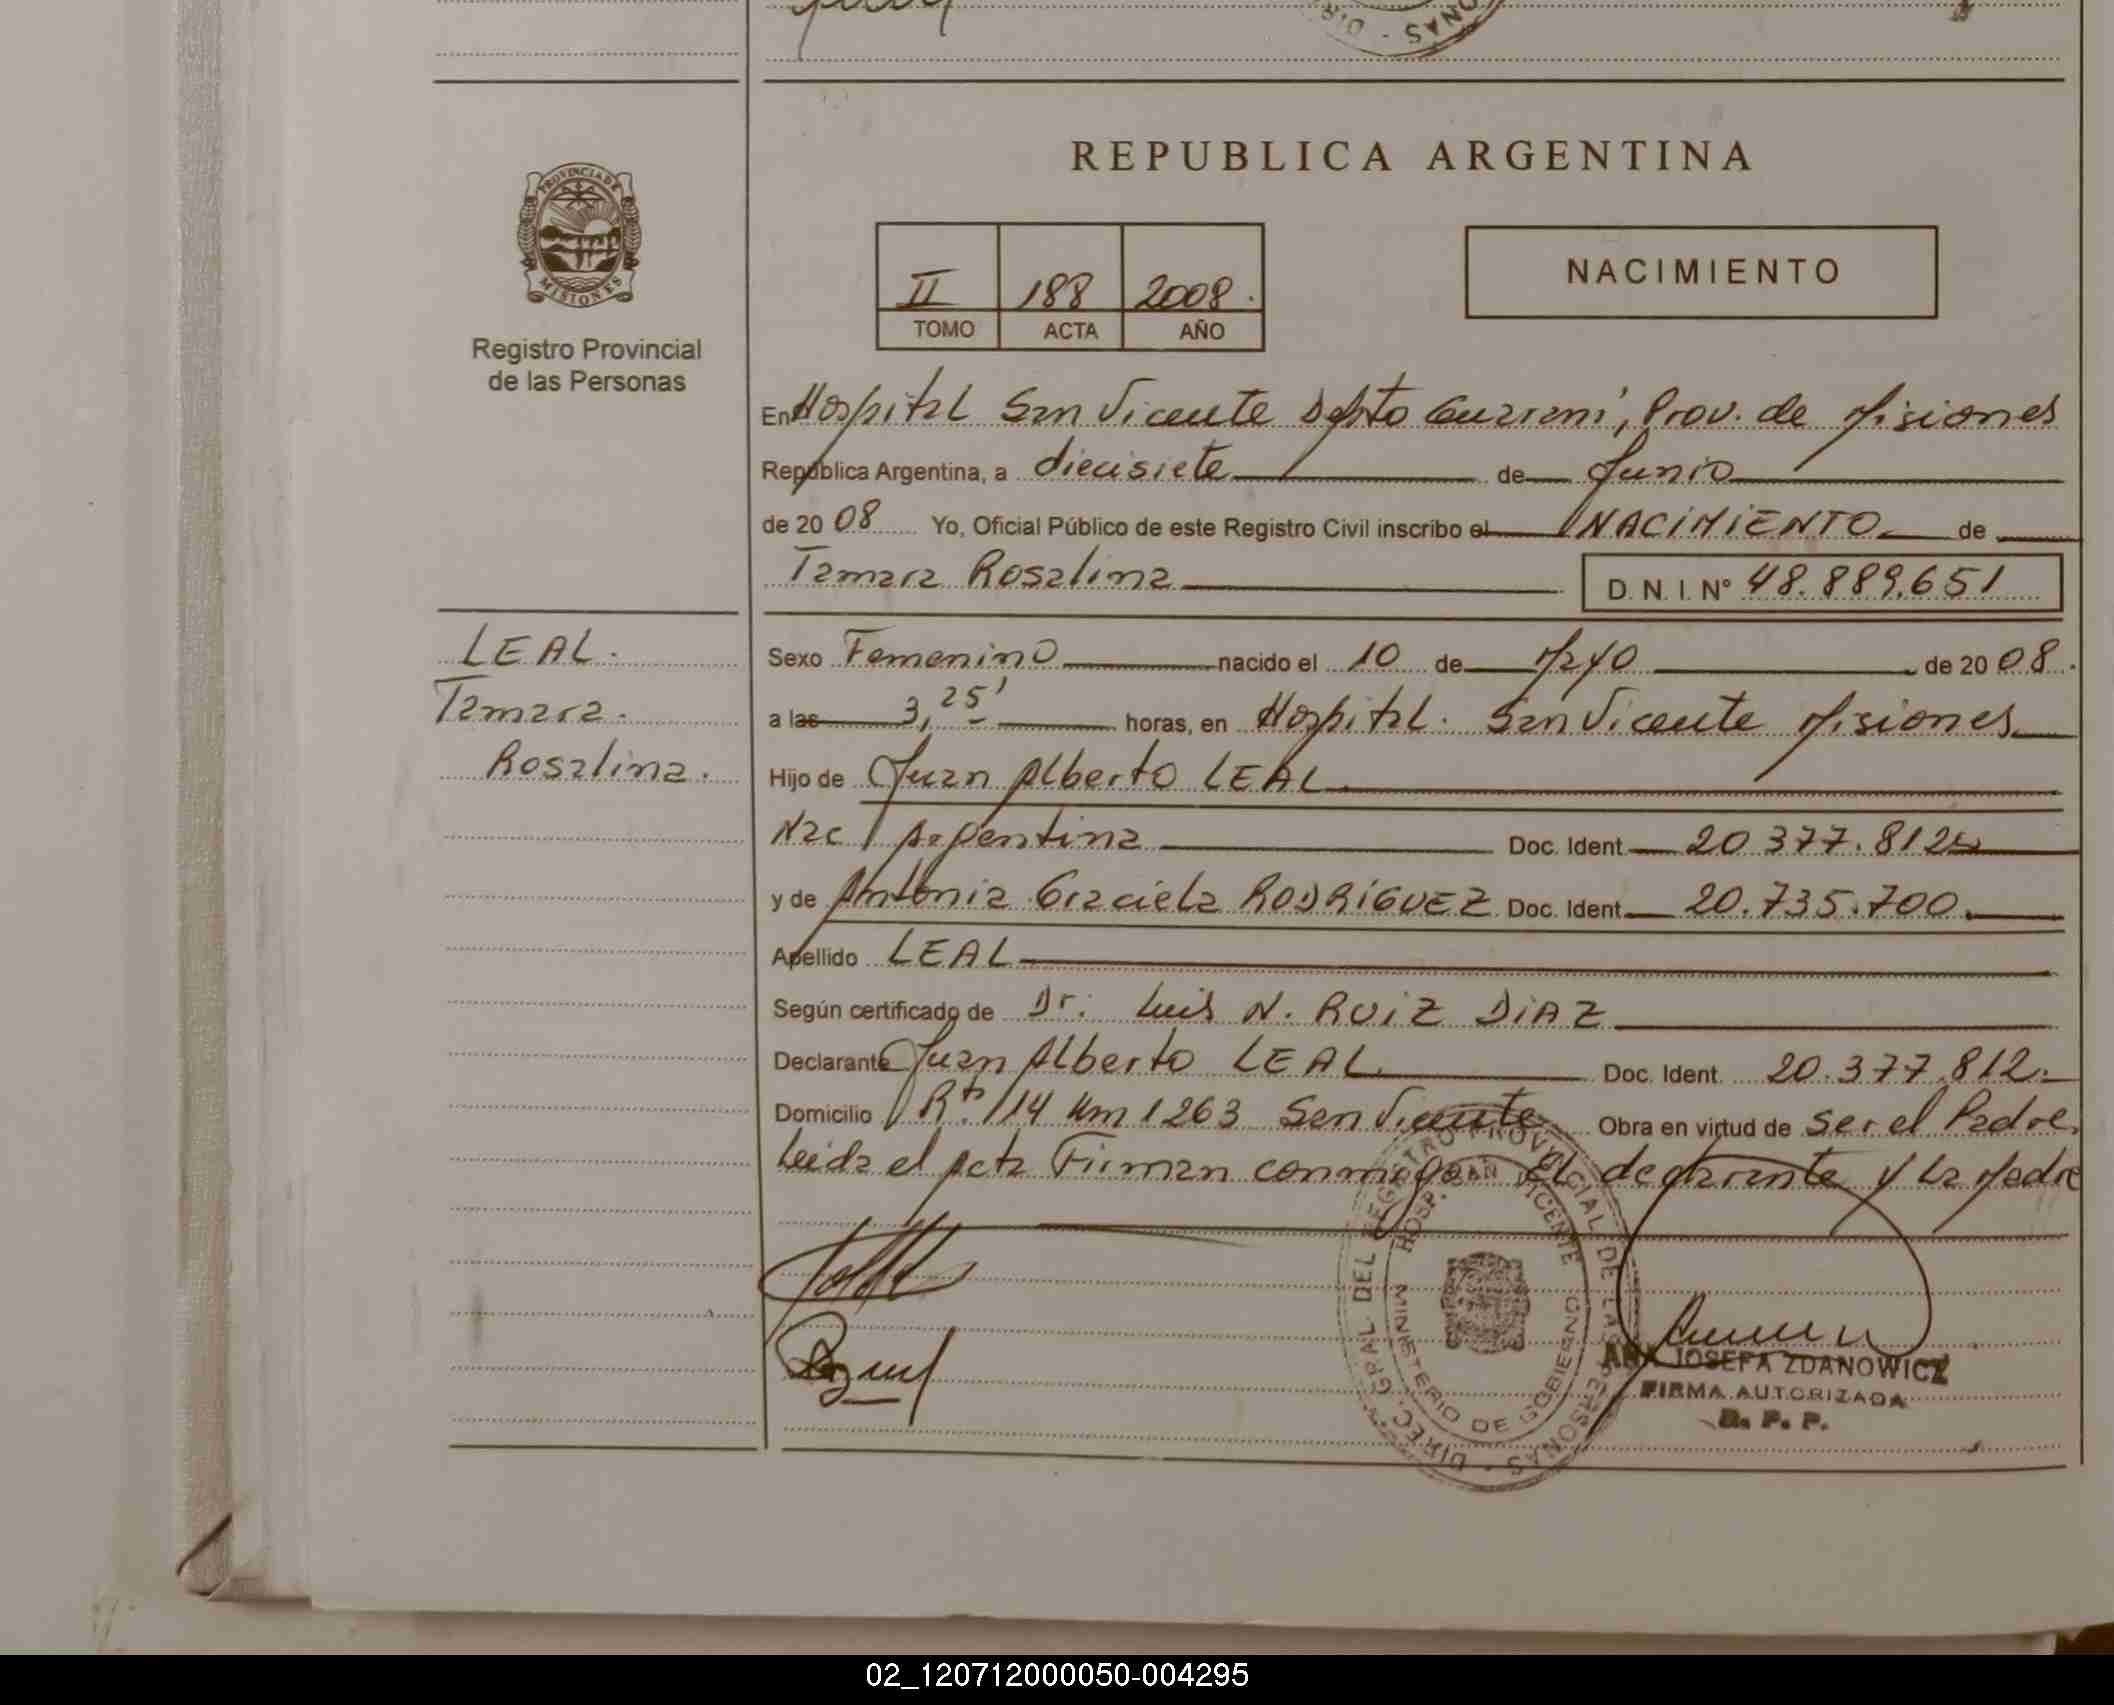 REPUBLICA ARGENTINA
PROVINCIA DE MISIONES
Registro Provincial
de las Personas
II 188 2008.
TOMO ACTA AÑO
NACIMIENTO
En Hospital San Vicente Depto Guarani, Prov. de Misiones
República Argentina, a diecisiete de Junio
de 2008 Yo, Oficial Público de este Registro Civil inscribo el NACIMIENTO de
Tamara Rosalina D.N.I. Nº 48.889.651
LEAL.
Tamara.
Rosalina.
Sexo Femenino nacido el 10 de Mayo de 2008.
a las 3,25' horas, en Hospital. San Vicente Misiones
Hijo de Juan Alberto LEAL
Nac Argentina Doc. Ident. 20 377.812
y de Antonia Graciela RODRIGUEZ Doc. Ident. 20.735.700.
Apellido LEAL
Según certificado de Dr. Luis N. RUIZ DIAZ
Declarante Juan Alberto LEAL Doc. Ident. 20.377.812.
Domicilio Rta 14 Km 1263 San Vicente Obra en virtud de ser el Padre.
Leida el Acta Firman conmigo el declarante y la Madre
DIREC. GRAL. DEL REGISTRO PROVINCIAL DE LAS PERSONAS
HOSP. SAN VICENTE
MINISTERIO DE GOBIERNO
ANA JOSEFA ZDANOWICZ
FIRMA AUTORIZADA
R. P. P.
02_120712000050-004295